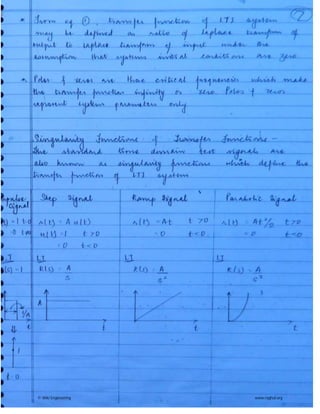 ②
* From eq ①, transfer function of LTI system
may be defined as ratio of laplace transform of
output to laplace transform of input under the
assumption that systems initial conditions are zero
* Poles & zeros are those critical frequencies which make
the transfer function infinity or zero. Poles & zeros
represent system parameters only
Singularity Functions & Transfer Functions -
The standard time domain test signals are
also known as singularity functions which define the
transfer function of LTI system
Impulse Signal Step Signal Ramp Signal Parabolic Signal
r(t) = A u(t) r(t) = At t > 0 r(t) = At²/2 t > 0
u(t) = 1 t > 0 = 0 t < 0 = 0 t < 0
= 0 t < 0
LT LT LT LT
R(s) = A/s R(s) = A/s² R(s) = A/s³
A
t t t t
t = 0
www.rgpvd.org